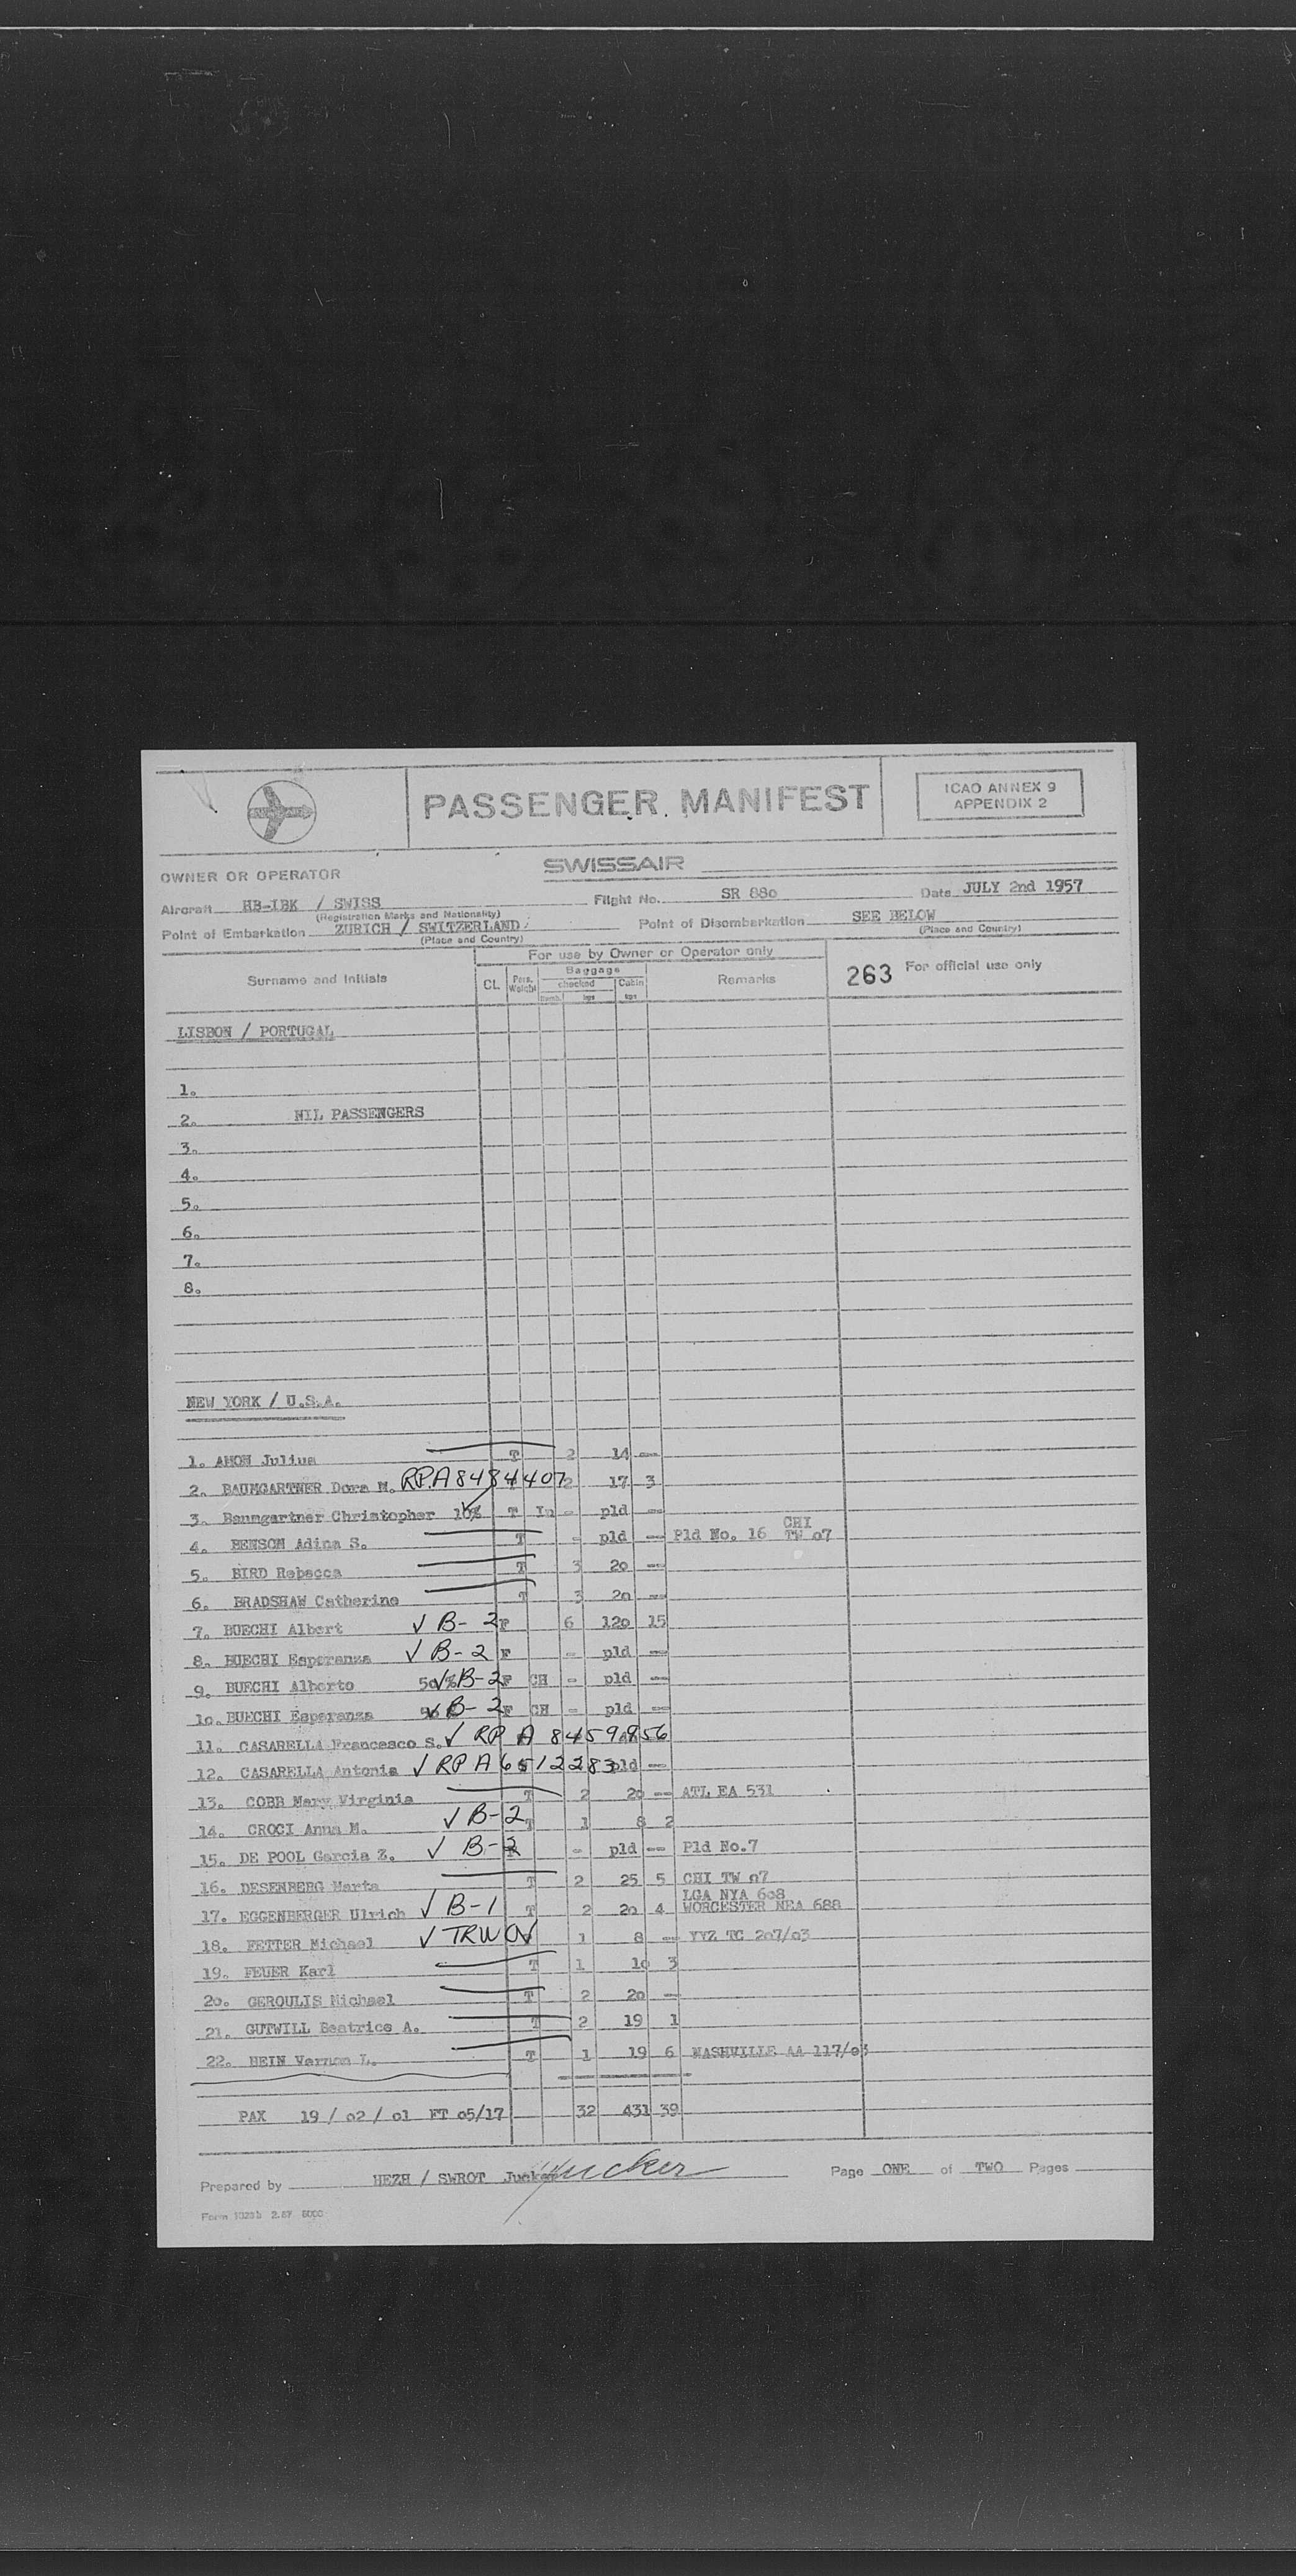 PASSENGER MANIFEST
ICAO ANNEX 9
APPENDIX 2
OWNER OR OPERATOR
SWISSAIR
Aircraft HB-IBK / SWISS Flight No. SR 88o Date JULY 2nd 1957
(Registration Marks and Nationality)
Point of Embarkation ZURICH / SWITZERLAND Point of Disembarkation SEE BELOW
(Place and Country) (Place and Country)
For use by Owner or Operator only
Surname and Initials CL Pers. Weight Baggage checked Cabin kgs Remarks 263 For official use only
LISBON / PORTUGAL
1.
2. NIL PASSENGERS
3.
4.
5.
6.
7.
8.
NEW YORK / U.S.A.
1. AMON Julius T 2 14 --
2. BAUMGARTNER Dora M. RP.A8484407 2 17 3
3. Baumgartner Christopher 10% T In - pld --
4. BENSON Adina S. T - pld -- Pld No. 16 CHI TW o7
5. BIRD Rebecca T 3 2o --
6. BRADSHAW Catherine T 3 2o --
7. BUECHI Albert ✓ B-2 F 6 12o 15
8. BUECHI Esperanza ✓ B-2 F - pld --
9. BUECHI Alberto 5o% ✓ B-2 F CH - pld --
1o. BUECHI Esperanza ✓ B-2 F CH - pld --
11. CASARELLA Francesco S. ✓ RP A 8459856
12. CASARELLA Antonia ✓ RP A 6512283 pld --
13. COBB Mary Virginia T 2 2o -- ATL EA 531
14. CROCI Anna M. ✓ B-2 T 1 8 2
15. DE POOL Garcia Z. ✓ B-2 - pld -- Pld No.7
16. DESENBERG Marta T 2 25 5 CHI TW o7
17. EGGENBERGER Ulrich ✓ B-1 T 2 2o 4 LGA NYA 6o8 WORCESTER NEA 688
18. FETTER Michael ✓ TRWOV 1 8 -- YYZ TC 2o7/o3
19. FEUER Karl T 1 1o 3
2o. GEROULIS Michael T 2 2o --
21. GUTWILL Beatrice A. T 2 19 1
22. HEIN Vernon L. T 1 19 6 NASHVILLE AA 117/o3
PAX 19 / o2 / o1 FT o5/17 32 431 39
Prepared by HEZH / SWROT Jucker Jucker Page ONE of TWO Pages
Form 1023b 2.57 5000